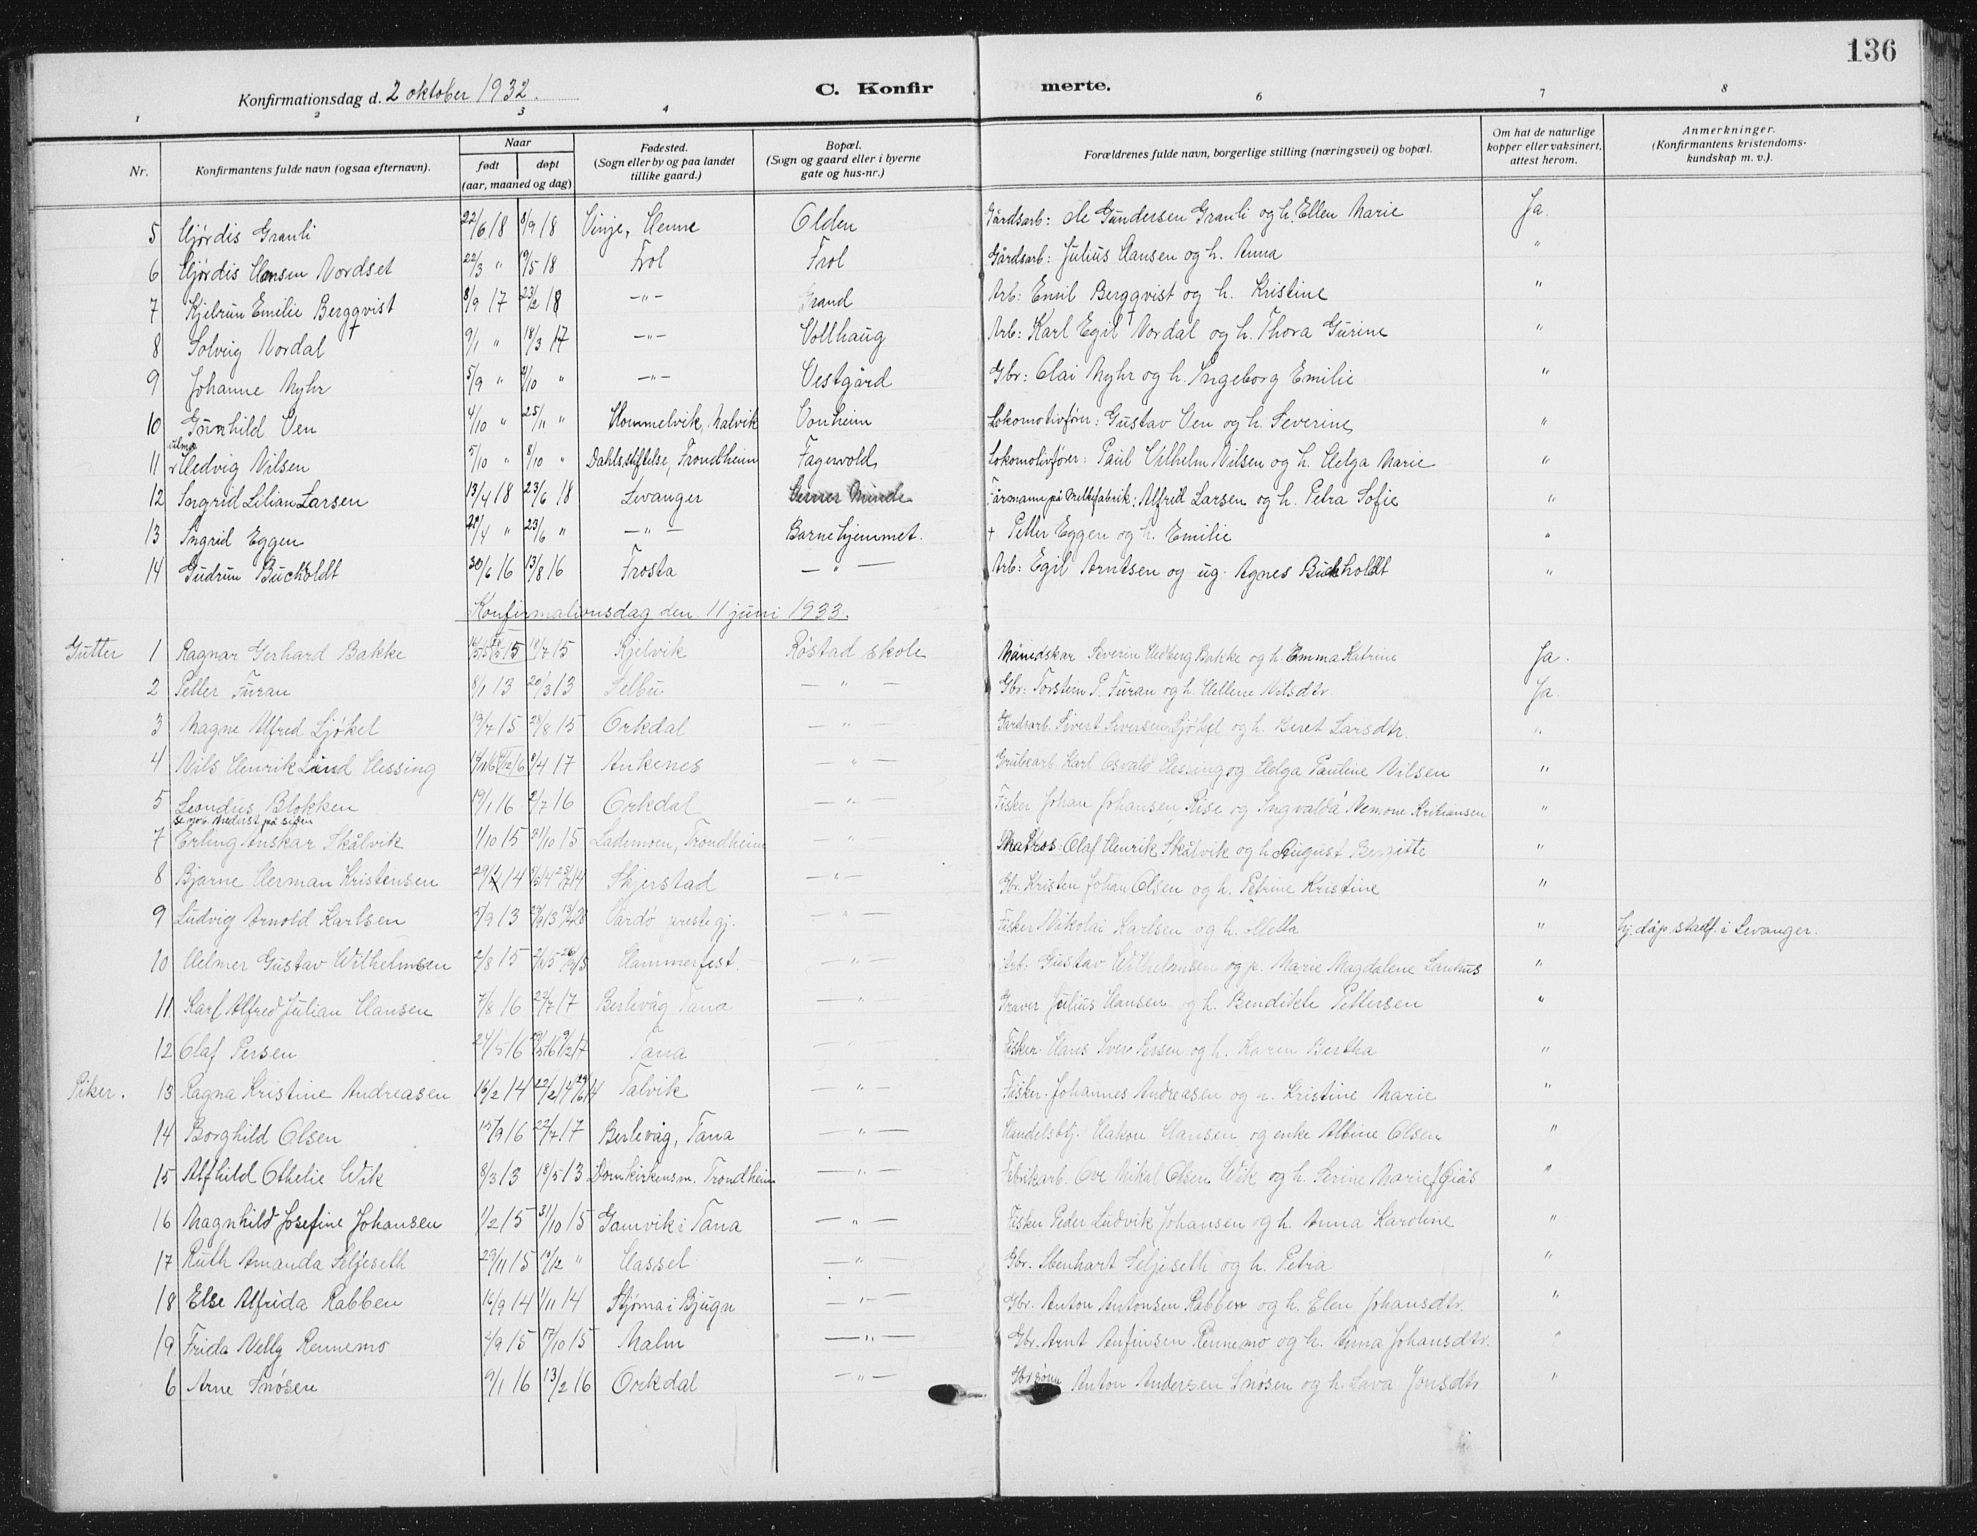 136
Konfirmationsdag d. 2 oktober 1932. C. Konfirmerte.
1 2 3 4 6 7 8
Nr. Konfirmantens fulde navn (ogsaa efternavn). Naar født døpt (aar, maaned og dag) Fødested. (Sogn eller by og paa landet tillike gaard.) Bopæl. (Sogn og gaard eller i byerne gate og hus-nr.) Forældrenes fulde navn, borgerlige stilling (næringsvei) og bopæl. Om hat de naturlige kopper eller vaksinert, attest herom. Anmerkninger. (Konfirmantens kristendoms-kundskap m. v.).
5 Hjørdis Granli 22/6 18 8/9 18 Vinje, Hemne Olden Gårdsarb: Ole Gundersen Granli og h. Ellen Marie Ja.
6 Hjørdis Hansen Nordset 22/3 " 19/5 18 Frol Frol Gårdsarb: Julius Hansen og h. Anna "
7 Kjelrun Emilie Bergqvist 8/9 17 23/2 18 —"— Grand Arb: Emil Bergqvist og h. Kristine "
8 Solveig Nordal 9/1 " 18/3 17 —"— Volthaug Arb: Karl Egil Nordal og h. Thora Gurine "
9 Johanne Myhr 5/9 " /10 " —"— Vestgård Gbr: Olai Myhr og h. Ingeborg Emilie "
10 Gunhild Ven 4/10 " 25/11 " Hommelvik, Malvik Vonheim Lokomotivfører: Gustav Ven og h. Severine "
11 Hedvig Nilsen 5/10 " 8/10 " Dahls stiftelse, Trondheim Fagervold Lokomotivfører: Paul Vilhelm Nilsen og h. Helga Marie "
12 Ingrid Lilian Larsen 13/4 18 23/6 18 Levanger Minde Formann på Melkfabrik: Alfred Larsen og h. Petra Sofie "
13 Ingrid Eggen /4 " 23/6 " —"— Barnehjemmet. + Petter Eggen og h. Emilie "
14 Gudrun Buchholdt 30/6 16 13/8 16 Frosta —"— Arb: Egil Arntsen og ug. Agnes Buchholdt "
Konfirmationsdag den 11 juni 1933.
Gutter 1 Ragnar Gerhard Bakke 15 /7 15 Kjelvik Røstad skole Severin Hedberg Bakke og h. Emma Katrine Ja.
2 Petter Furan 8/1 13 20/3 13 Selbu —"— Gbr: Torstein P. Furan og h. Hellene Nilsdtr. Ja.
3 Magne Alfred Sjøkel 19/7 15 28/8 15 Orkdal —"— Gardsarb. Sivert Sivertsen Sjøkel og h. Beret Larsdtr. "
4 Nils Henrik Lind Hessing 16 /4 17 Ankenes —"— Grubearb. Karl Osvald Hessing og Helga Pauline Nilsen "
5 Leondus Blokken 19/1 16 2/7 16 Orkdal —"— Fisker Johan Johansen Rise og Ingvalda Nemone Kristiansen "
Se no 6. nederst på siden
7 Erling Anskar Skålvik 1/10 15 /10 15 Lademoen, Trondheim —"— Matros: Olaf Henrik Skålvik og h. August Bergitte "
8 Bjarne Herman Kristensen 29/ 14 14 Skjerstad —"— Gbr. Kristen Johan Olsen og h. Petrine Kristine "
9 Ludvig Arnold Karlsen 5/9 13 13 Vardø prestegj. —"— Fisker Nikolai Karlsen og h. Mella " hj. døp. stadf. i Levanger.
10 Helmer Gustav Wilhelmsen 2/8 15 Hammerfest. —"— Arb: Gustav Wilhelmsen og p. Marie Magdalene Lanhus "
11 Karl Alfred Julian Hansen 7/8 16 22/7 17 Berlevåg Tana —"— Graver Julius Hansen og h. Bendikte Pettersen "
12 Olaf Persen 24/5 16 16 9/2 17 Tana —"— Fisker Hans Iver Persen og h. Karen Bertha "
Piker. 13 Ragna Kristine Andreasen 16/2 14 22/2 14 29/6 14 Talvik —"— Fisker Johannes Andreasen og h. Kristine Marie "
14 Borghild Olsen 15/9 16 22/7 17 Berlevåg, Tana —"— Handelsbtj. Hakon Hansen og enke Albine Olsen "
15 Alfhild Othelie Wik 8/3 13 18/5 13 Domkirkensm. Trondheim —"— Fabrikarb. Ove Mikal Olsen Wik og h. Serine Marie f. Giås "
16 Magnhild Josefine Johansen 1/2 15 31/10 15 Gamvik i Tana —"— Fisker Peder Ludvik Johansen og h. Anna Karoline "
17 Ruth Amanda Seljeseth 29/11 15 19/12 " Hassel —"— Gbr. Ebenhart Seljeseth og h. Petra "
18 Else Alfrida Rabben 16/9 14 1/11 14 Stjørna i Bjugn —"— Gbr. Anton Antonsen Rabben og h. Elen Johansdtr. "
19 Frida Nelly Rennemo 2/9 15 17/10 15 Malm —"— Gbr. Arnt Anfinsen Rennemo og h. Anna Johansdtr. "
6 Arne Snøsen 9/1 16 13/2 16 Orkdal —"— Anton Andersen Snøsen og h. Lava Jonsdtr. "